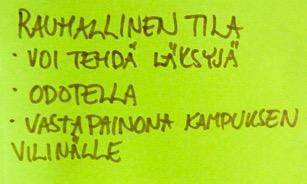 RAUHALLINEN TILA
· VOI TEHDÄ LÄKSYJÄ
· ODOTELLA
· VASTAPAINONA KAMPUKSEN
VILINÄLLE